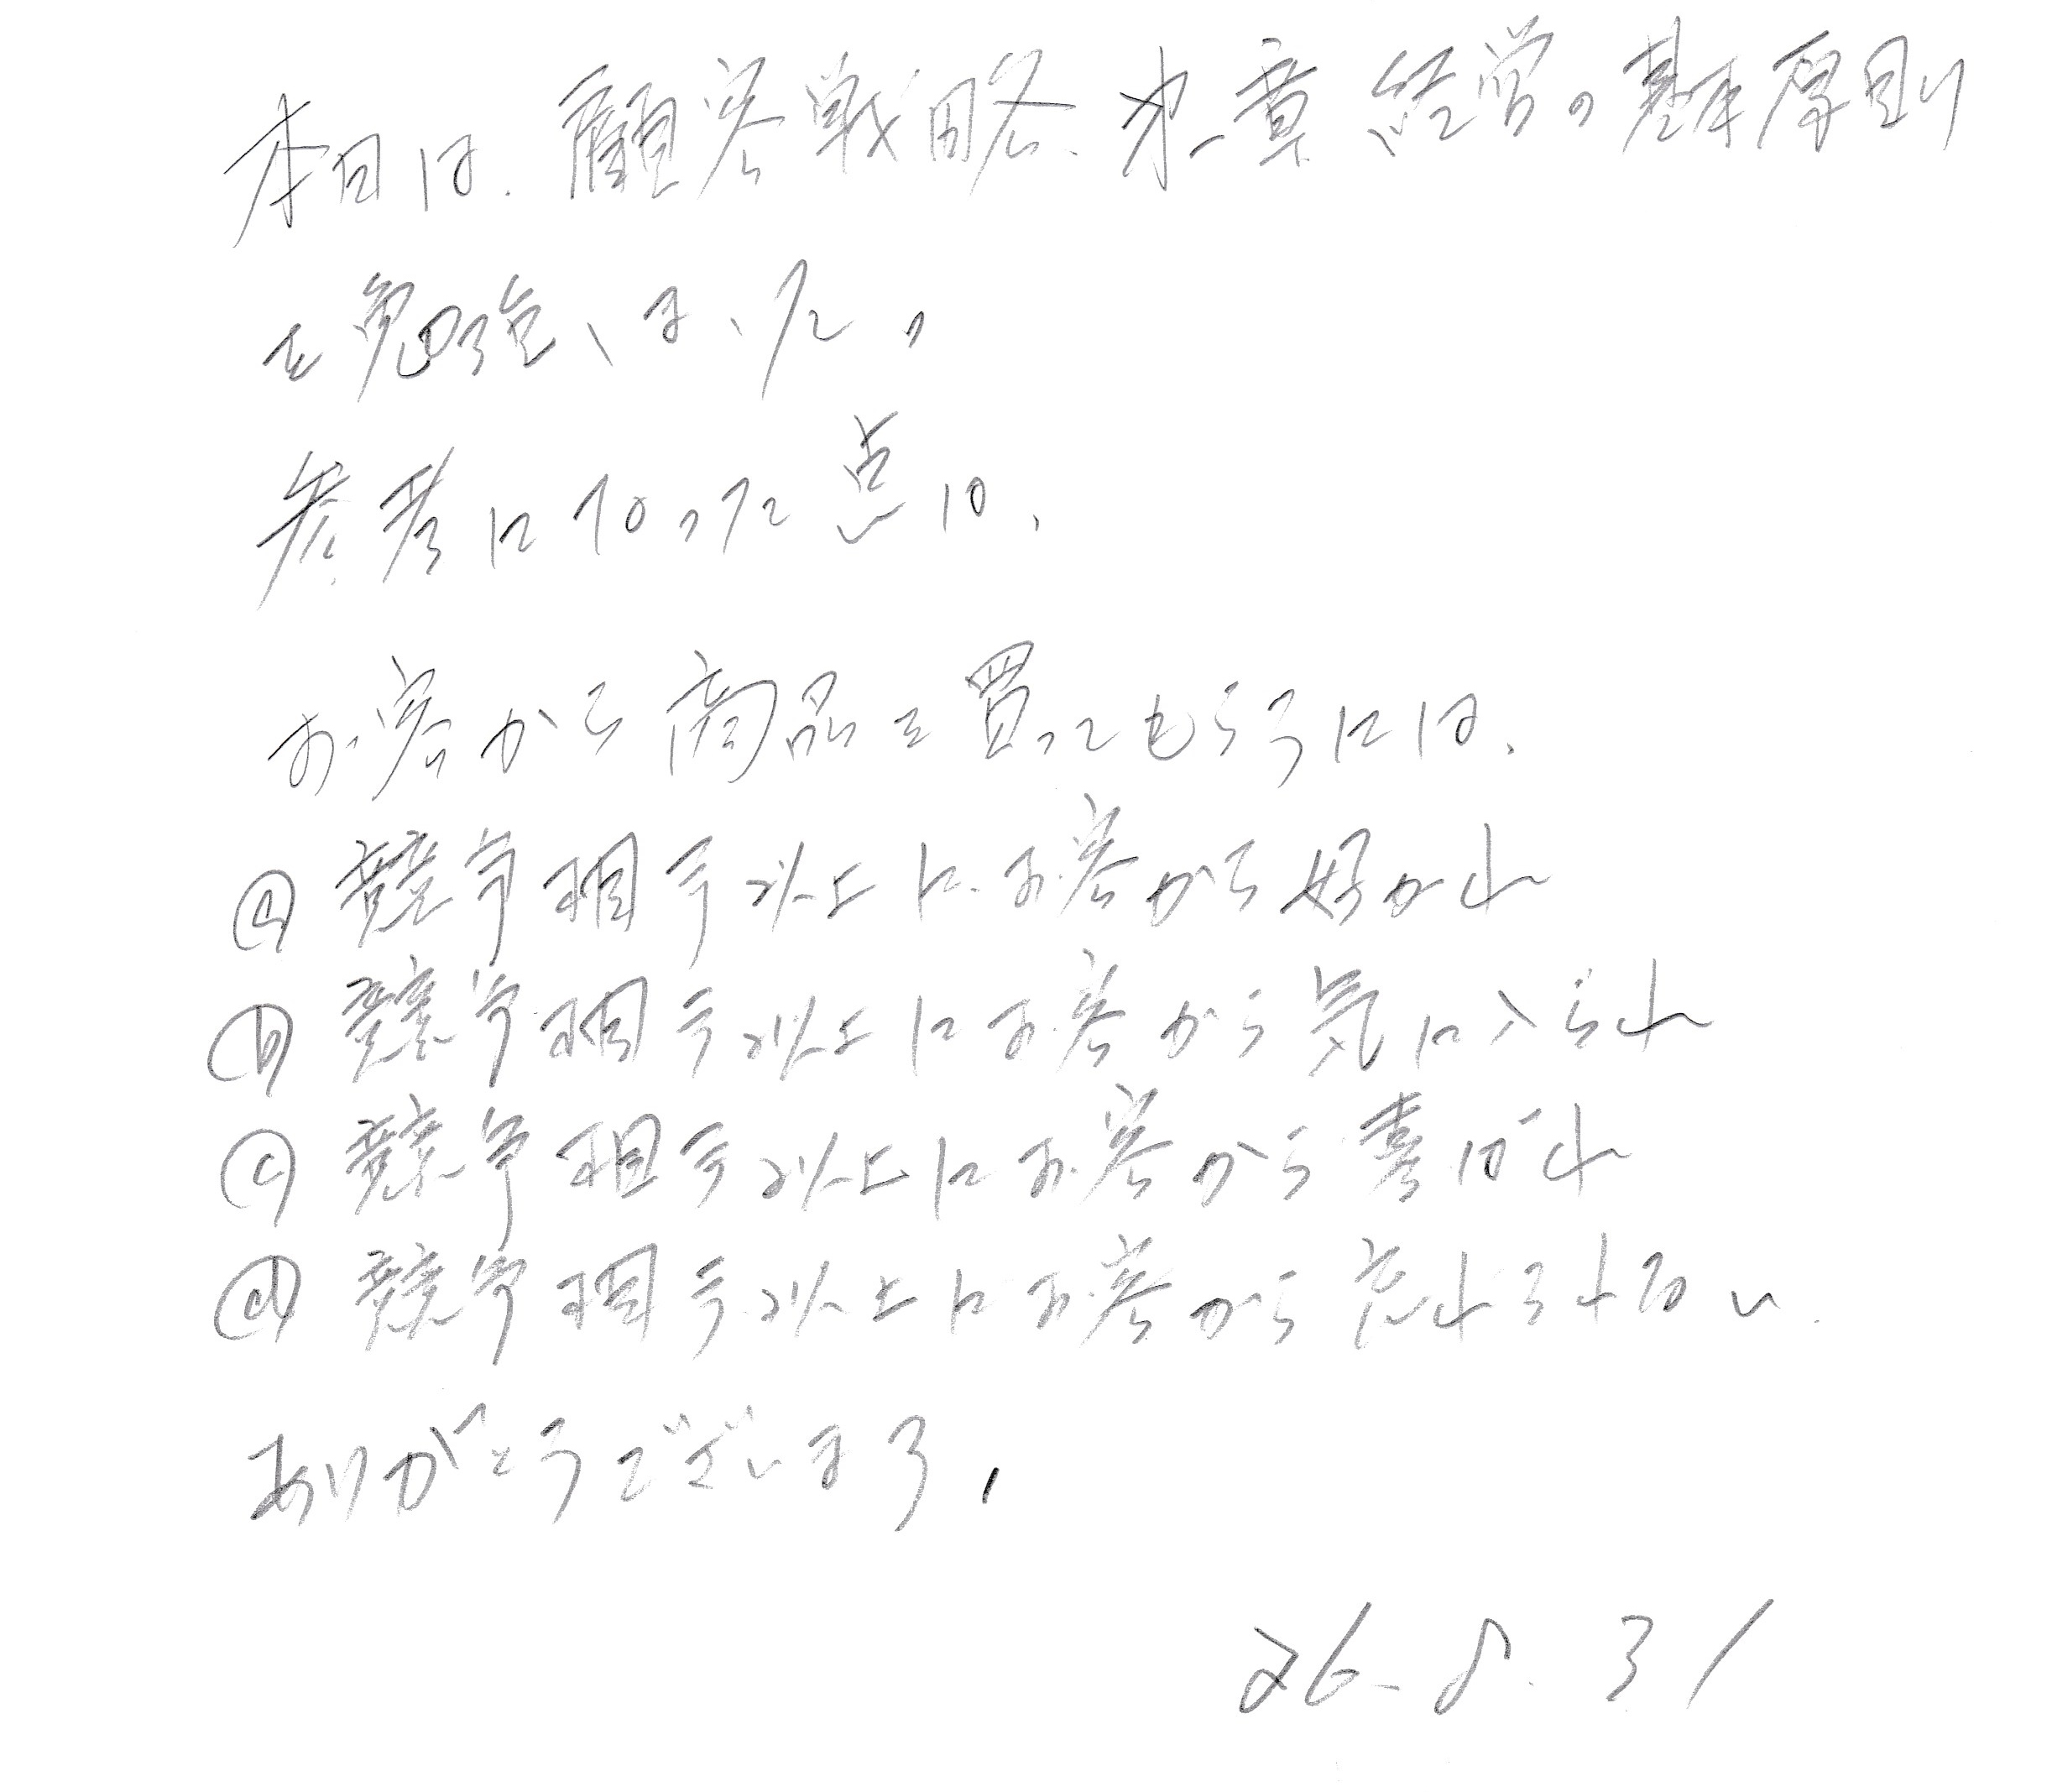 本日は、顧客戦略、第一章 経営の基本原則
を勉強しました。
参考になった点は、
お客から商品を買ってもらうには、
ⓐ 競争相手以上にお客から好かれ
ⓑ 競争相手以上にお客から気に入られ
ⓒ 競争相手以上にお客から喜ばれ
ⓓ 競争相手以上にお客から忘れられない
ありがとうございます。
26.8.31